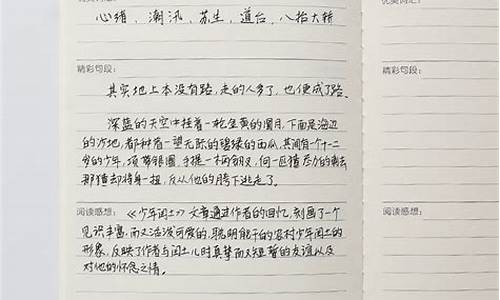 心绪、潮汛、苏生、道台、八抬大轿
精彩句段:
其实地上本没有路,走的人多了,也便成了路。
深蓝的天空中挂着一轮金黄的圆月,下面是海边
的沙地,都种着一望无际的碧绿的西瓜,其间有一个十一二
岁的少年,项带银圈,手捏一柄钢叉,向一匹猹尽力的刺去
那猹却将身一扭,反从他的胯下逃走了。
阅读感想:
《少年闰土》文章通过作者的回忆,刻画了一个
见识丰富,而又活泼可爱的、聪明能干的农村少年闰土的
形象,反映了作者与闰土儿时真挚而又短暂的友谊以及
对他的怀念之情。
精彩句段:
阅读感想: